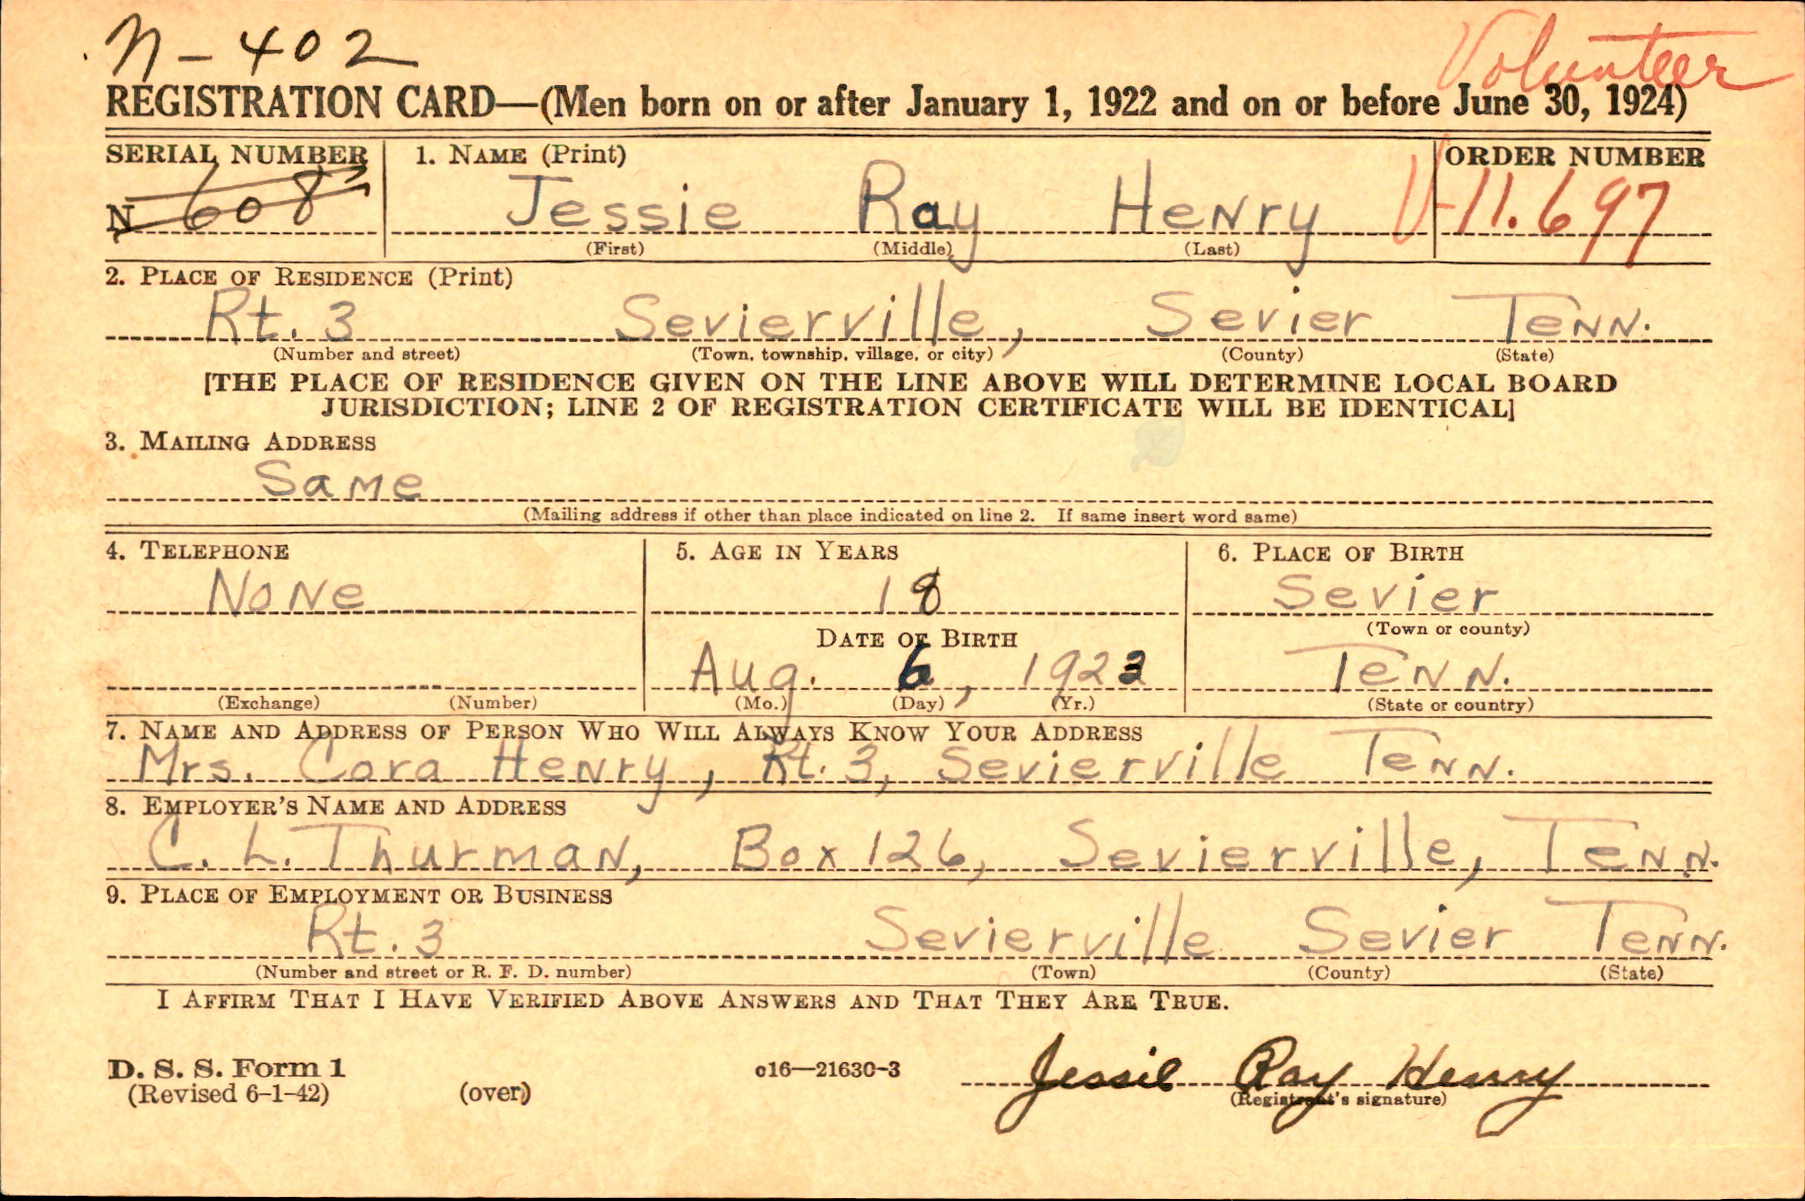 N-402
Volunteer
REGISTRATION CARD—(Men born on or after January 1, 1922 and on or before June 30, 1924)
SERIAL NUMBER 1. NAME (Print) ORDER NUMBER
N 608 Jessie Ray Henry V-11.697
(First) (Middle) (Last)
2. PLACE OF RESIDENCE (Print)
Rt. 3 Sevierville, Sevier Tenn.
(Number and street) (Town, township, village, or city) (County) (State)
[THE PLACE OF RESIDENCE GIVEN ON THE LINE ABOVE WILL DETERMINE LOCAL BOARD
JURISDICTION; LINE 2 OF REGISTRATION CERTIFICATE WILL BE IDENTICAL]
3. MAILING ADDRESS
Same
(Mailing address if other than place indicated on line 2. If same insert word same)
4. TELEPHONE 5. AGE IN YEARS 6. PLACE OF BIRTH
None 18 Sevier
(Town or county)
DATE OF BIRTH
Aug. 6, 1923 Tenn.
(Exchange) (Number) (Mo.) (Day) (Yr.) (State or country)
7. NAME AND ADDRESS OF PERSON WHO WILL ALWAYS KNOW YOUR ADDRESS
Mrs. Cora Henry, Rt. 3, Sevierville Tenn.
8. EMPLOYER'S NAME AND ADDRESS
C. L. Thurman, Box 126, Sevierville, Tenn.
9. PLACE OF EMPLOYMENT OR BUSINESS
Rt. 3 Sevierville Sevier Tenn.
(Number and street or R. F. D. number) (Town) (County) (State)
I AFFIRM THAT I HAVE VERIFIED ABOVE ANSWERS AND THAT THEY ARE TRUE.
D. S. S. Form 1 c16—21630-3 Jessie Ray Henry
(Revised 6-1-42) (over) (Registrant's signature)